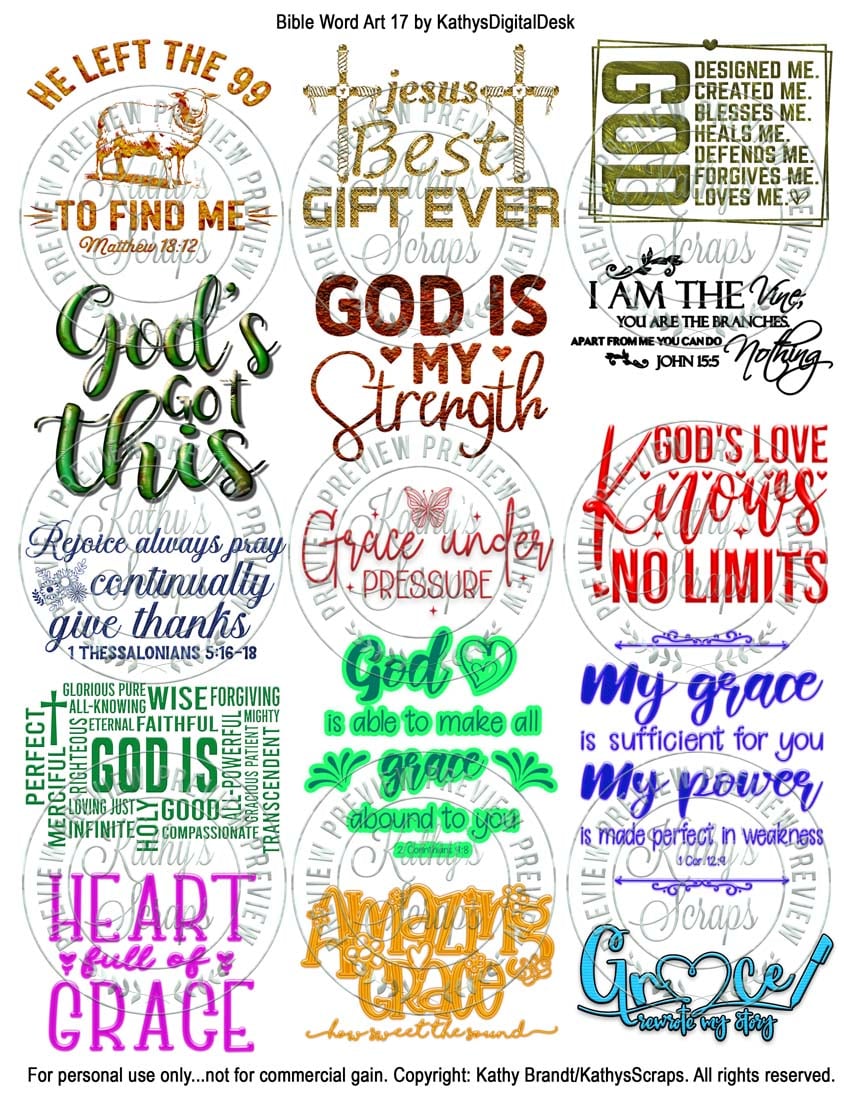 Bible Word Art 17 by KathysDigitalDesk
HE LEFT THE 99
TO FIND ME
Matthew 18:12
jesus
Best
GIFT EVER
GOD
DESIGNED ME.
CREATED ME.
BLESSES ME.
HEALS ME.
DEFENDS ME.
FORGIVES ME.
LOVES ME.
God's
GoT
this
GOD IS
MY
Strength
I AM THE Vine,
YOU ARE THE BRANCHES.
APART FROM ME YOU CAN DO Nothing
JOHN 15:5
Rejoice always pray
continually
give thanks
1 THESSALONIANS 5:16-18
Grace under
PRESSURE
GOD'S LOVE
Knows
NO LIMITS
GLORIOUS PURE
ALL-KNOWING
WISE FORGIVING
ETERNAL FAITHFUL
MIGHTY
PERFECT
MERCIFUL
RIGHTEOUS
GOD IS
ALL-POWERFUL
GRACIOUS PATIENT
TRANSCENDENT
LOVING JUST
INFINITE
HOLY
GOOD
COMPASSIONATE
God
is able to make all
grace
abound to you
2 Corinthians 9:8
My grace
is sufficient for you
My power
is made perfect in weakness
1 Cor 12:9
HEART
full of
GRACE
Amazing
GRACE
how sweet the sound
Grace
rewrote my story
PREVIEW PREVIEW PREVIEW
Kathy's
Scraps
For personal use only...not for commercial gain. Copyright: Kathy Brandt/KathysScraps. All rights reserved.